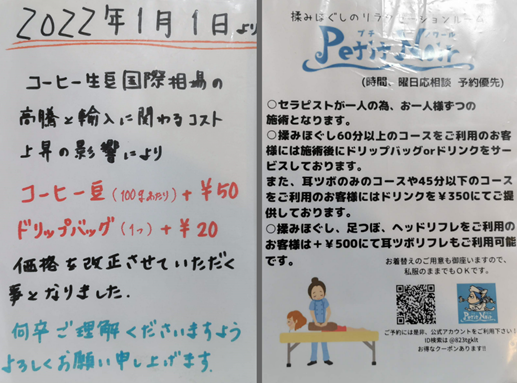 2022年1月1日より
コーヒー生豆国際相場の
高騰と輸入に関わるコスト
上昇の影響により
コーヒー豆(100gあたり)+¥50
ドリップバッグ(1つ)+¥20
価格を改正させていただく
事となりました.
何卒ご理解くださいますよう
よろしくお願い申し上げます.
揉みほぐしのリラクゼーションルーム
プチ
Petit Noir
(時間、曜日応相談 予約優先)
○セラピストが一人の為、お一人様ずつの
施術となります。
○揉みほぐし60分以上のコースをご利用のお客
様には施術後にドリップバッグorドリンクをサー
ビスしております。
また、耳ツボのみのコースや45分以下のコース
をご利用のお客様にはドリンクを¥350にてご提
供しております。
○揉みほぐし、足つぼ、ヘッドリフレをご利用の
お客様は+¥500にて耳ツボリフレもご利用可能
です。
お着替えのご用意も御座いますので、
私服のままでもOKです。
Petit Noir
ご予約には是非、公式アカウントをご利用下さい!
ID検索は @823tgklt
お得なクーポンあります!!